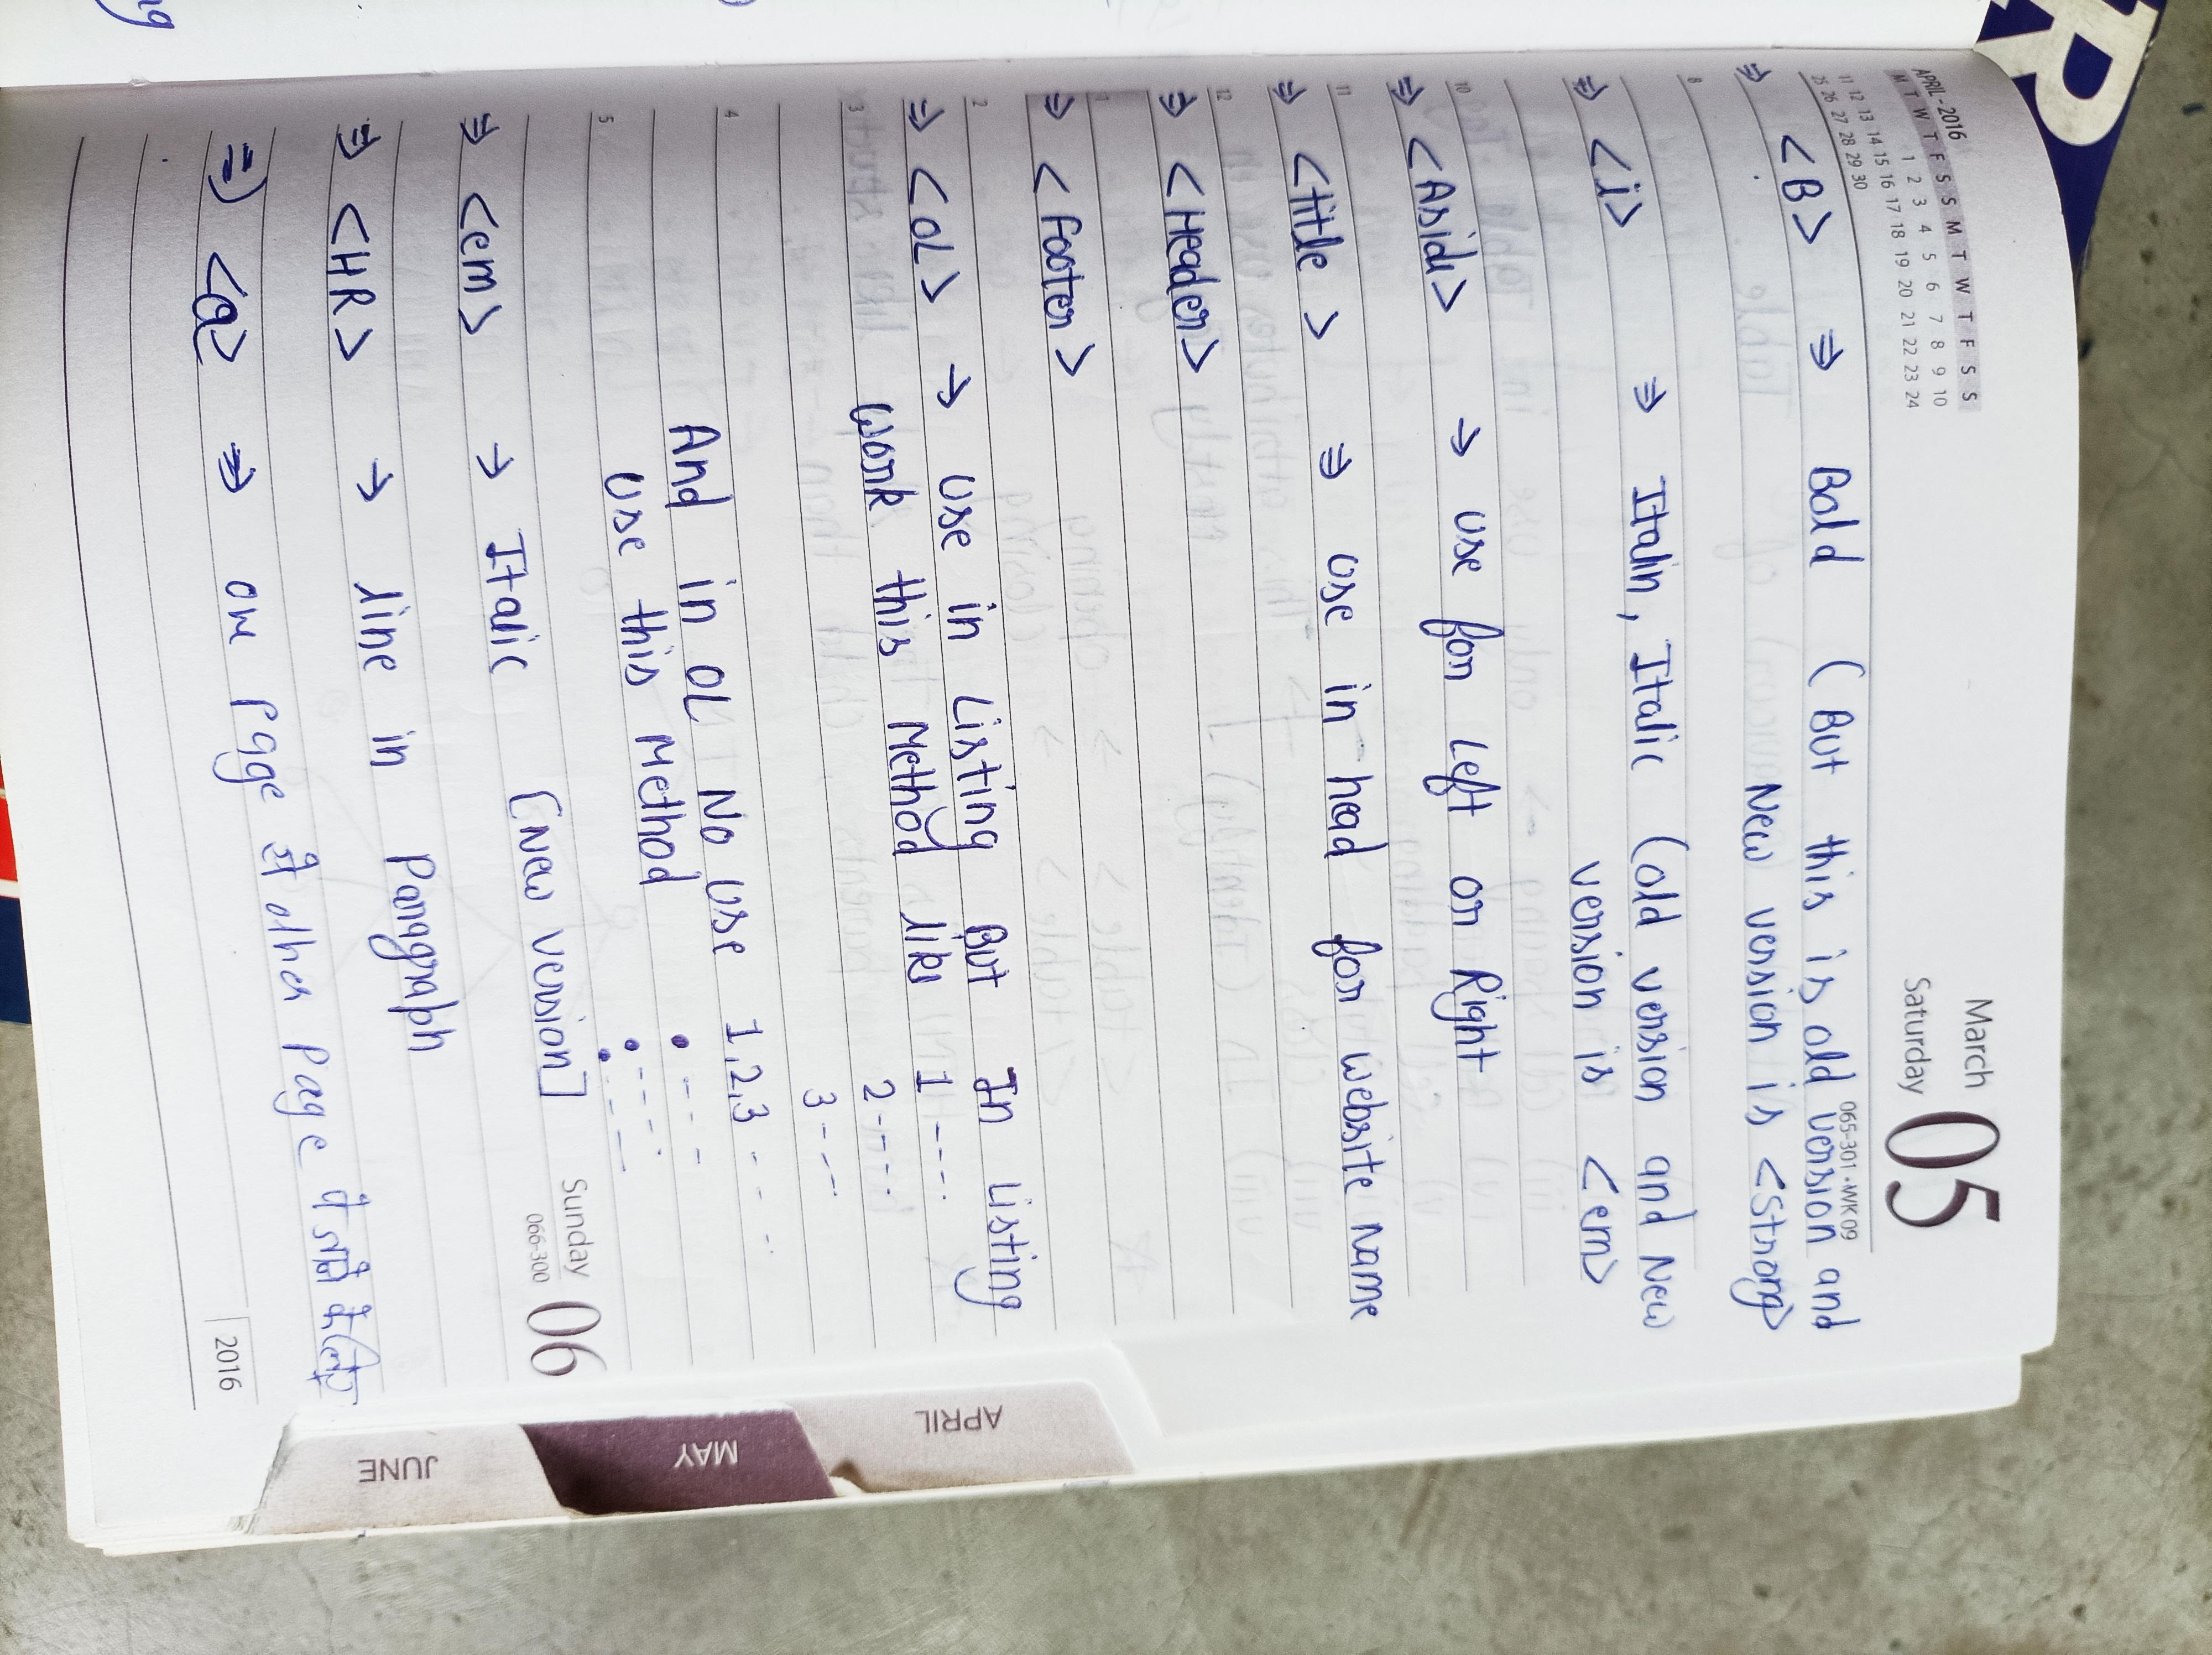 APRIL - 2016
M T W T F S S M T W T F S S
1 2 3 4 5 6 7 8 9 10
11 12 13 14 15 16 17 18 19 20 21 22 23 24
25 26 27 28 29 30
March
Saturday
05
065-301 • WK 09
⇒ <B> ⇒ Bold (But this is old version and
New version is <strong>
8
⇒ <i> ⇒ Italin, Italic (old version and New
version is <em>
10 ⇒ <Aside> → use for Left or Right
11 ⇒ <title> ⇒ use in head for website name
12 ⇒ <Header>
1 ⇒ <footer>
2 ⇒ <OL> → use in Listing But In Listing
3 work this Method like 1 ----
2 ----
3 ----
4 And in OL No use 1,2,3 - - -
5 use this Method • ----
• ----
• ----
Sunday
066-300
06
⇒ <em> → Italic [New version]
⇒ <HR> → line in Paragraph
⇒ <a> ⇒ one Page से other Page पे
2016
APRIL
MAY
JUNE
R